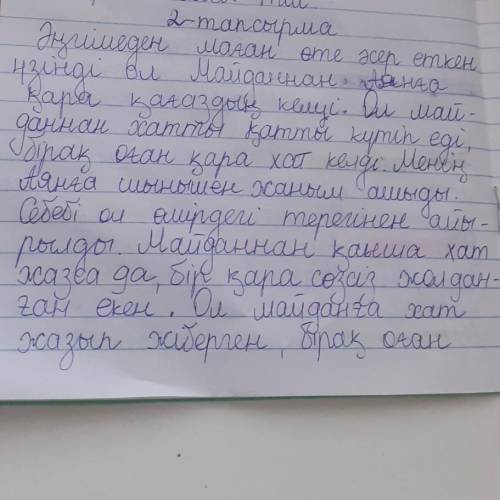 2-тапсырма
Әңгімеден маған өте әсер еткен
үзінді ол Майданнан Аянға
қара қағаздың келуі. Ол май-
даннан хатты қатты күтіп еді,
бірақ оған қара хат келді. Менің
Аянға шынымен жаным ашыды.
Себебі ол өмірдегі терегінен айы-
рылды. Майданнан қанша хат
жазса да, бір қара сөзсіз жолдан-
ған екен. Ол майданға хат
жазып жіберген, бірақ оған